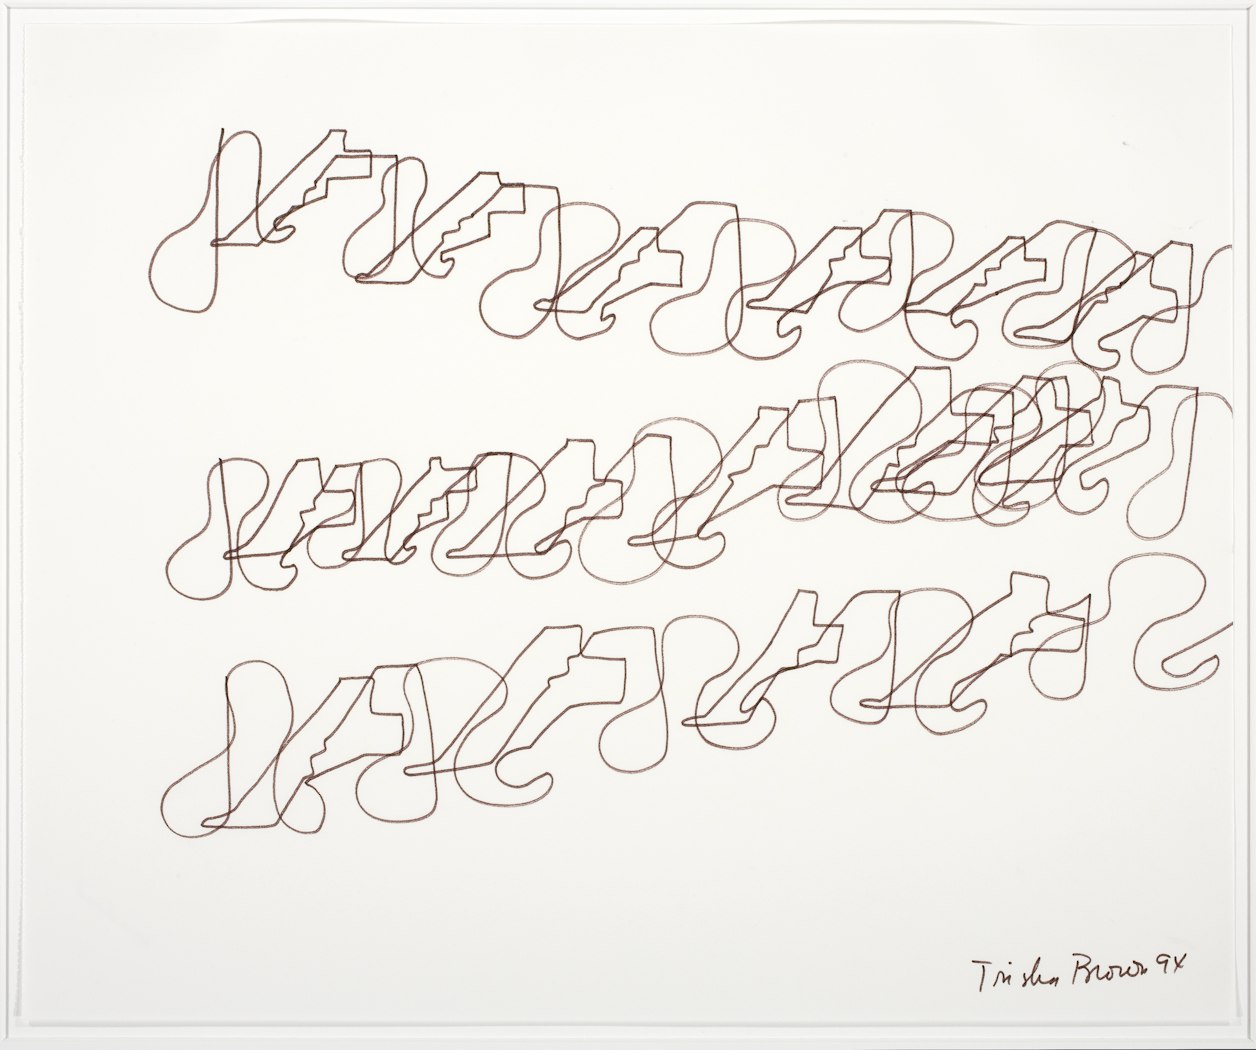 Trisha Brown 9x